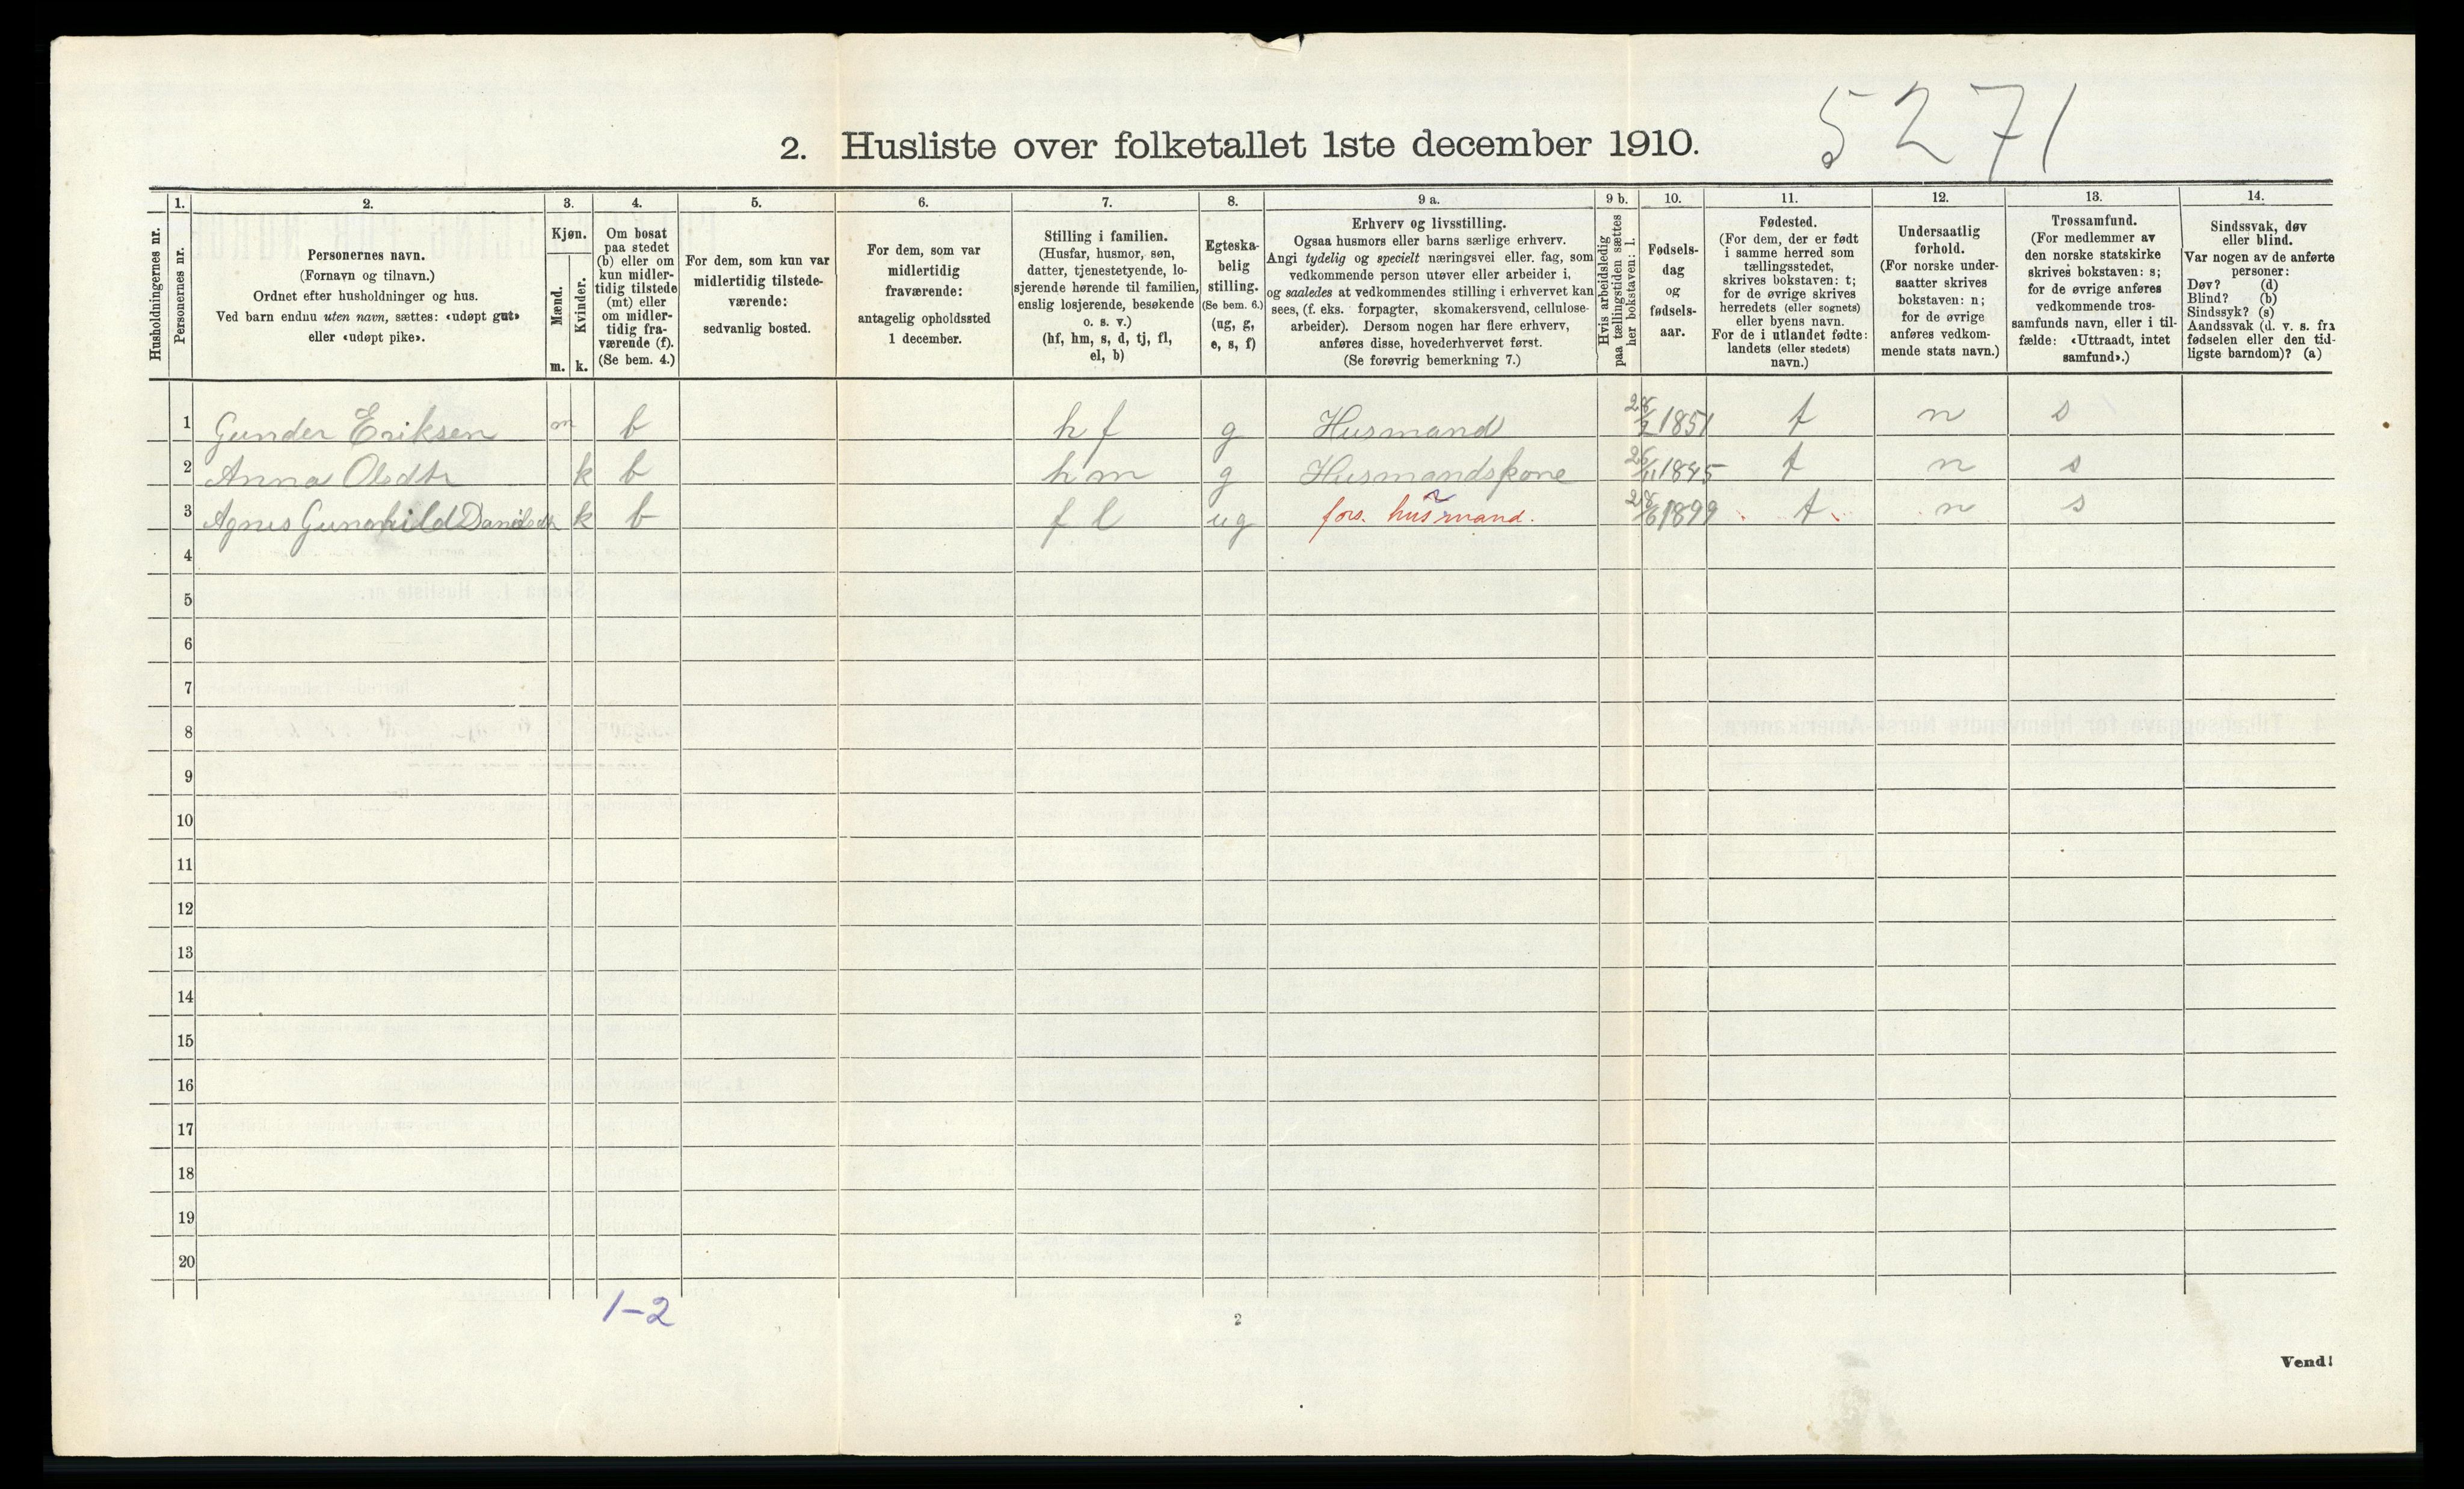 5271
2. Husliste over folketallet 1ste december 1910.
Husholdningernes nr.
1.
Personernes nr.
2.
Personernes navn.
(Fornavn og tilnavn.)
Ordnet efter husholdninger og hus.
Ved barn endnu uten navn, sættes: «udøpt gut»
eller «udøpt pike».
3.
Kjøn.
Mænd.
Kvinder.
m. k.
4.
Om bosat
paa stedet
(b) eller om
kun midler-
tidig tilstede
(mt) eller
om midler-
tidig fra-
værende (f).
(Se bem. 4.)
5.
For dem, som kun var
midlertidig tilstede-
værende:
sedvanlig bosted.
6.
For dem, som var
midlertidig
fraværende:
antagelig opholdssted
1 december.
7.
Stilling i familien.
(Husfar, husmor, søn,
datter, tjenestetyende, lo-
sjerende hørende til familien,
enslig losjerende, besøkende
o. s. v.)
(hf, hm, s, d, tj, fl,
el, b)
8.
Egteska-
belig
stilling.
(Se bem. 6.)
(ug, g,
e, s, f)
9 a.
Erhverv og livsstilling.
Ogsaa husmors eller barns særlige erhverv.
Angi tydelig og specielt næringsvei eller fag, som
vedkommende person utøver eller arbeider i,
og saaledes at vedkommendes stilling i erhvervet kan
sees, (f. eks. forpagter, skomakersvend, cellulose-
arbeider). Dersom nogen har flere erhverv,
anføres disse, hovederhvervet først.
(Se forøvrig bemerkning 7.)
9 b.
Hvis arbeidsledig
paa tællingstiden sættes
her bokstaven: l.
10.
Fødsels-
dag
og
fødsels-
aar.
11.
Fødested.
(For dem, der er født
i samme herred som
tællingsstedet,
skrives bokstaven: t;
for de øvrige skrives
herredets (eller sognets)
eller byens navn.
For de i utlandet fødte:
landets (eller stedets)
navn.)
12.
Undersaatlig
forhold.
(For norske under-
saatter skrives
bokstaven: n;
for de øvrige
anføres vedkom-
mende stats navn.)
13.
Trossamfund.
(For medlemmer av
den norske statskirke
skrives bokstaven: s;
for de øvrige anføres
vedkommende tros-
samfunds navn, eller i til-
fælde: «Uttraadt, intet
samfund».)
14.
Sindssvak, døv
eller blind.
Var nogen av de anførte
personer:
Døv? (d)
Blind? (b)
Sindssyk? (s)
Aandssvak (d. v. s. fra
fødselen eller den tid-
ligste barndom)? (a)
1 Gunder Eriksen m b h f g Husmand 1851 t n s
2 Anna Olsdtr k b h m g Husmandskone 1845 t n s
3 Agnes Gunchild k b f l ug fors. husmand. 1899 t n s
4
5
6
7
8
9
10
11
12
13
14
15
16
17
18
19
20
1-2
2
Vend!